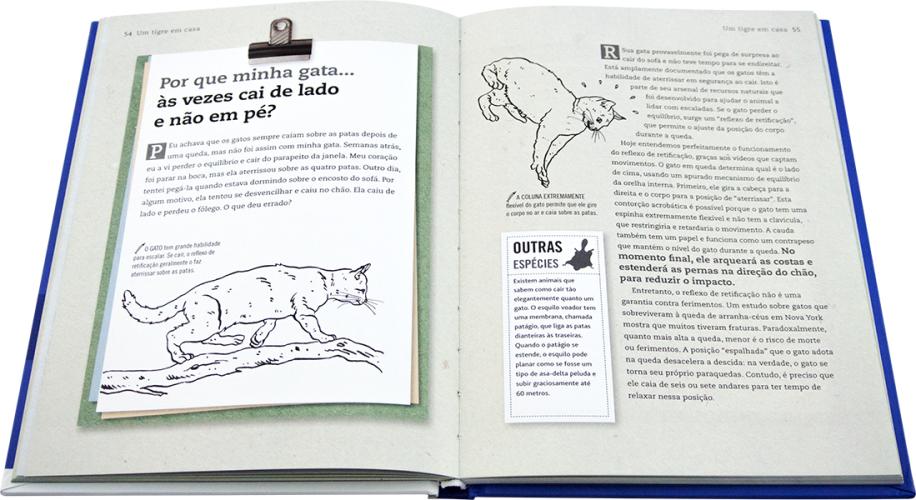 54 Um tigre em casa
Por que minha gata...
às vezes cai de lado
e não em pé?
P Eu achava que os gatos sempre caíam sobre as patas depois de
uma queda, mas não foi assim com minha gata. Semanas atrás,
eu a vi perder o equilíbrio e cair do parapeito da janela. Meu coração
foi parar na boca, mas ela aterrissou sobre as quatro patas. Outro dia,
tentei pegá-la quando estava dormindo sobre o encosto do sofá. Por
algum motivo, ela tentou se desvencilhar e caiu no chão. Ela caiu de
lado e perdeu o fôlego. O que deu errado?
O GATO tem grande habilidade
para escalar. Se cair, o reflexo de
retificação geralmente o faz
aterrissar sobre as patas.
Um tigre em casa 55
R Sua gata provavelmente foi pega de surpresa ao
cair do sofá e não teve tempo para se endireitar.
Está amplamente documentado que os gatos têm a
habilidade de aterrissar em segurança ao cair. Isto é
parte de seu arsenal de recursos naturais que
foi desenvolvido para ajudar o animal a
lidar com escaladas. Se o gato perder o
equilíbrio, surge um "reflexo de retificação",
que permite o ajuste da posição do corpo
durante a queda.
Hoje entendemos perfeitamente o funcionamento
do reflexo de retificação, graças aos vídeos que captam
movimentos. O gato em queda determina qual é o lado
de cima, usando um apurado mecanismo de equilíbrio
da orelha interna. Primeiro, ele gira a cabeça para a
direita e o corpo para a posição de "aterrissar". Esta
contorção acrobática é possível porque o gato tem uma
espinha extremamente flexível e não tem a clavícula,
que restringiria e retardaria o movimento. A cauda
também tem um papel e funciona como um contrapeso
que mantém o nível do gato durante a queda. No
momento final, ele arqueará as costas e
estenderá as pernas na direção do chão,
para reduzir o impacto.
Entretanto, o reflexo de retificação não é uma
garantia contra ferimentos. Um estudo sobre gatos que
sobreviveram à queda de arranha-céus em Nova York
mostra que muitos tiveram fraturas. Paradoxalmente,
quanto mais alta a queda, menor é o risco de morte
ou ferimentos. A posição "espalhada" que o gato adota
na queda desacelera a descida: na verdade, o gato se
torna seu próprio paraquedas. Contudo, é preciso que
ele caia de seis ou sete andares para ter tempo de
relaxar nessa posição.
A COLUNA EXTREMAMENTE
flexível do gato permite que ele gire
o corpo no ar e caia sobre as patas.
OUTRAS
ESPÉCIES
Existem animais que
sabem como cair tão
elegantemente quanto um
gato. O esquilo voador tem
uma membrana, chamada
patágio, que liga as patas
dianteiras às traseiras.
Quando o patágio se
estende, o esquilo pode
planar como se fosse um
tipo de asa-delta peluda e
subir graciosamente até
60 metros.